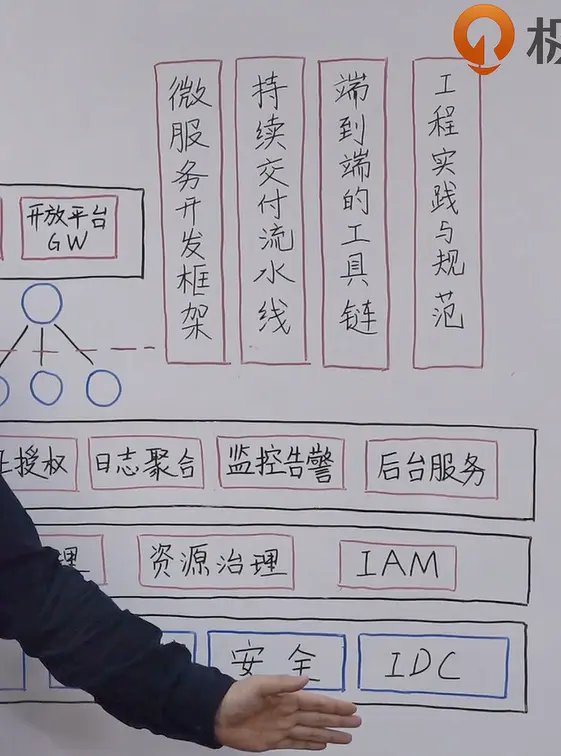 极
微服务开发框架
持续交付流水线
端到端的工具链
工程实践与规范
开放平台
GW
授权
日志聚合
监控告警
后台服务
理
资源治理
IAM
安全
IDC